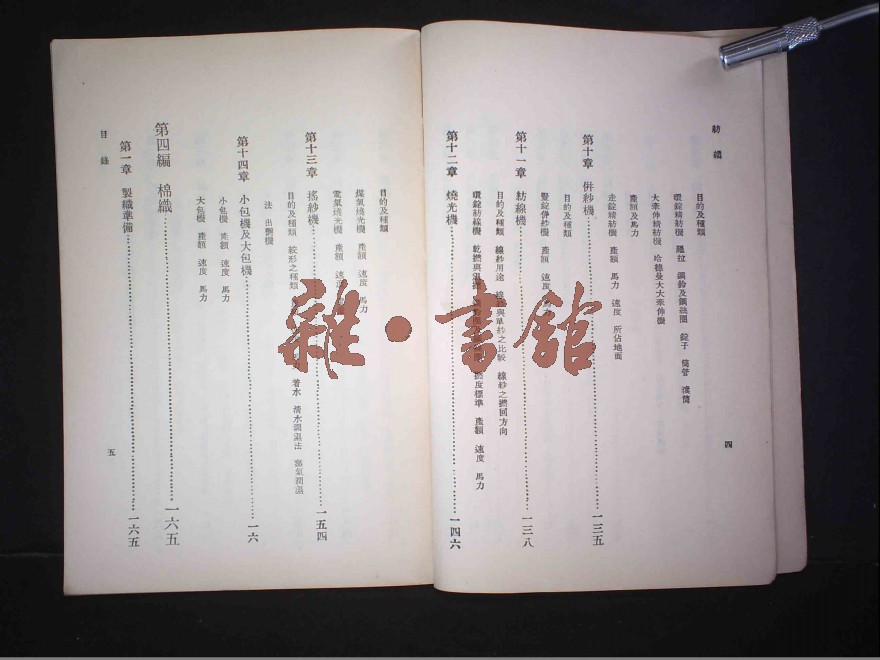 紡織
目的及種類
環錠精紡機 羅拉 鋼鈴及鋼絲圈 錠子 筒管 滾筒
大牽伸精紡機 哈德曼大大牽伸機
產額及馬力
走錠精紡機 產額 馬力 速度 所佔地面
第十章 併紗機 一三五
目的及種類
豎錠併紗機 產額 速度
第十一章 紡線機 一三八
目的及種類 線紗用途 與單紗之比較 線紗之撚回方向
環錠紡線機 乾撚與 撚度標準 產額 速度 馬力
第十二章 燒光機 一四六
四
目的及種類
煤氣燒光機 產額 速度 馬力
電氣燒光機 產額 速度
第十三章 搖紗機 一五四
目的及種類 絞形之種類 着水 清水潤濕法 蒸氣潤濕
法 出 機
第十四章 小包機及大包機 一六
小包機 產額 速度 馬力
大包機 產額 速度 馬力
第四編 棉織 一六五
第一章 製織準備 一六五
目錄
五
雜·書館